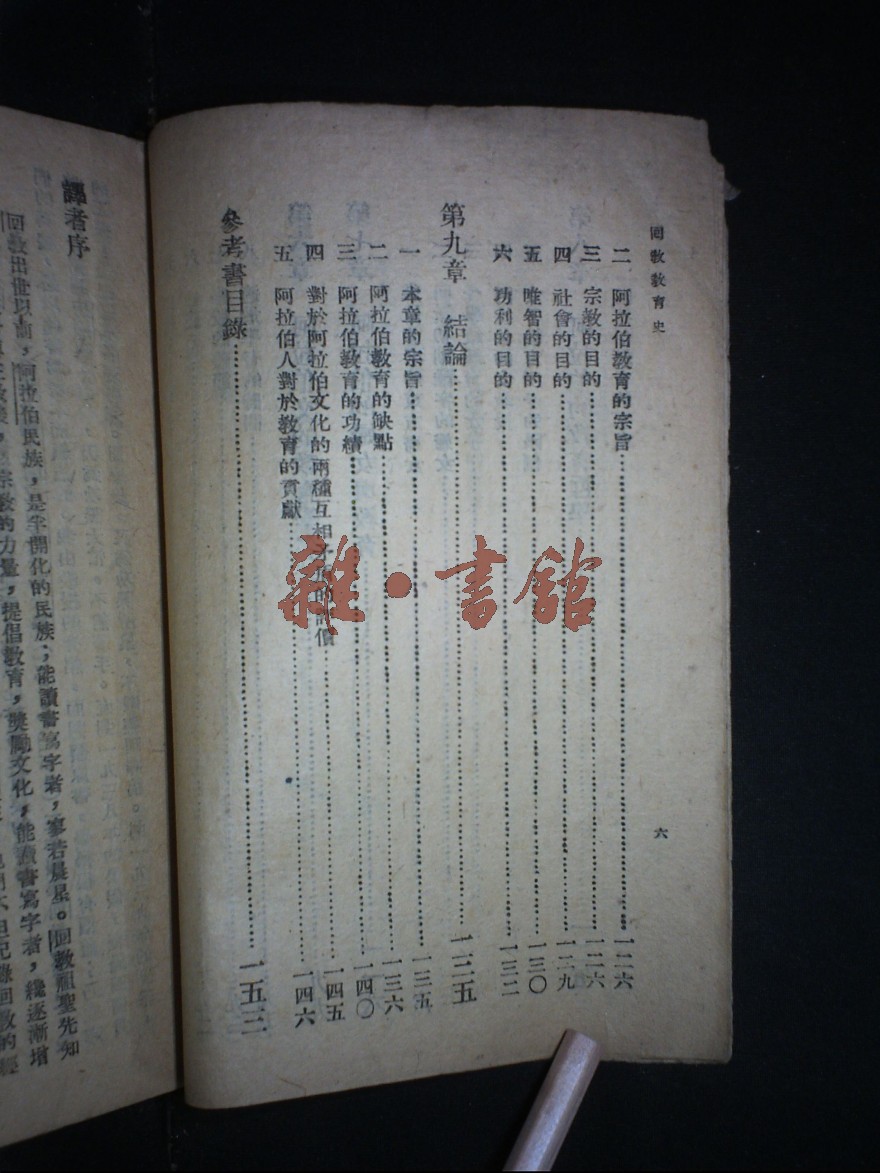 回教教育史
六
二 阿拉伯教育的宗旨 一二六
三 宗教的目的 一二六
四 社會的目的 一二九
五 唯智的目的 一三〇
六 功利的目的 一三二
第九章 結論 一三五
一 本章的宗旨 一三五
二 阿拉伯教育的缺點 一三六
三 阿拉伯教育的功績 一四〇
四 對於阿拉伯文化的兩種互相 的評價 一四五
五 阿拉伯人對於教育的貢獻 一四六
參考書目錄 一五三
雜·書館
譯者序
回教出世以前，阿拉伯民族，是半開化的民族，能讀書寫字者，寥若晨星。回教祖聖先知
宗教的力量，提倡教育，獎勵文化，能讀書寫字者，纔逐漸增